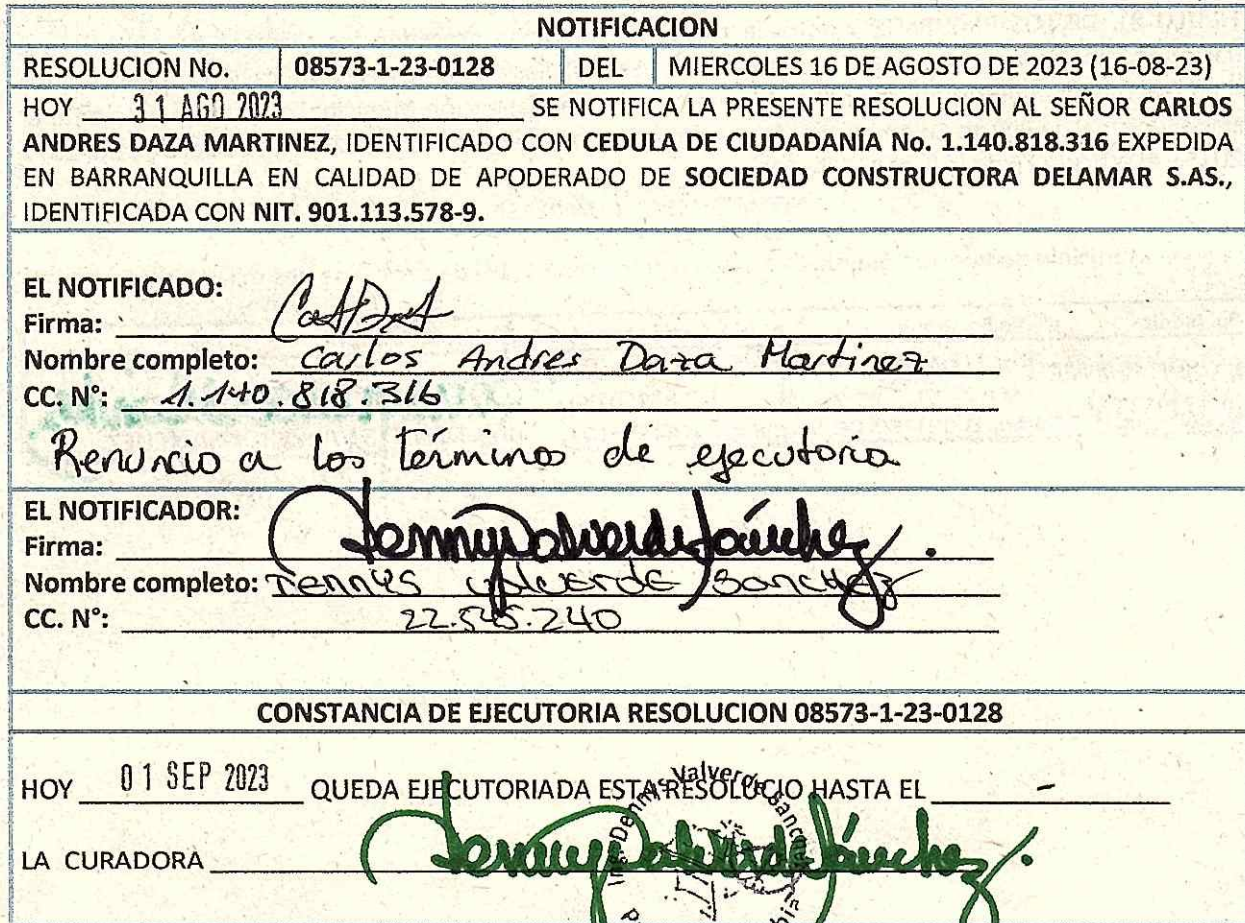 NOTIFICACION
RESOLUCION No. 08573-1-23-0128 DEL MIERCOLES 16 DE AGOSTO DE 2023 (16-08-23)
HOY 31 AGO 2023 SE NOTIFICA LA PRESENTE RESOLUCION AL SEÑOR CARLOS
ANDRES DAZA MARTINEZ, IDENTIFICADO CON CEDULA DE CIUDADANÍA No. 1.140.818.316 EXPEDIDA
EN BARRANQUILLA EN CALIDAD DE APODERADO DE SOCIEDAD CONSTRUCTORA DELAMAR S.AS.,
IDENTIFICADA CON NIT. 901.113.578-9.
EL NOTIFICADO:
Firma:
Nombre completo: Carlos Andres Daza Martinez
CC. N°: 1.140.818.316
Renuncio a los términos de ejecutoria
EL NOTIFICADOR:
Firma:
Nombre completo: Dennys Valverde Sanchez
CC. N°: 22.545.240
CONSTANCIA DE EJECUTORIA RESOLUCION 08573-1-23-0128
HOY 01 SEP 2023 QUEDA EJECUTORIADA ESTA RESOLUCIO HASTA EL -
LA CURADORA